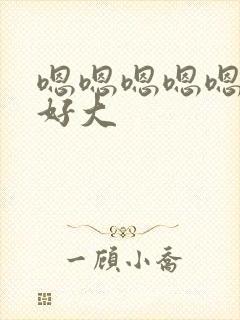 嗯嗯嗯嗯嗯
好大
一顾小乔